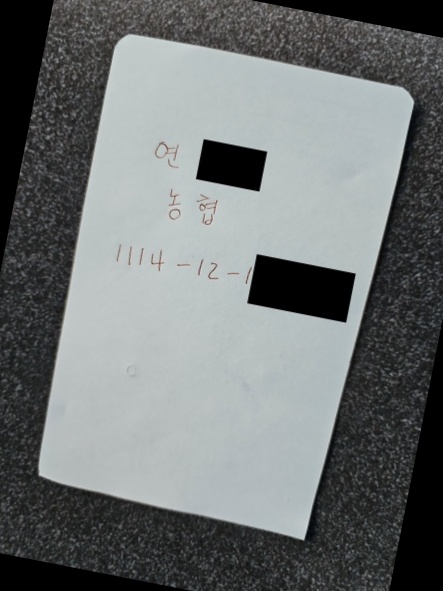 연
농협
1114-12-1